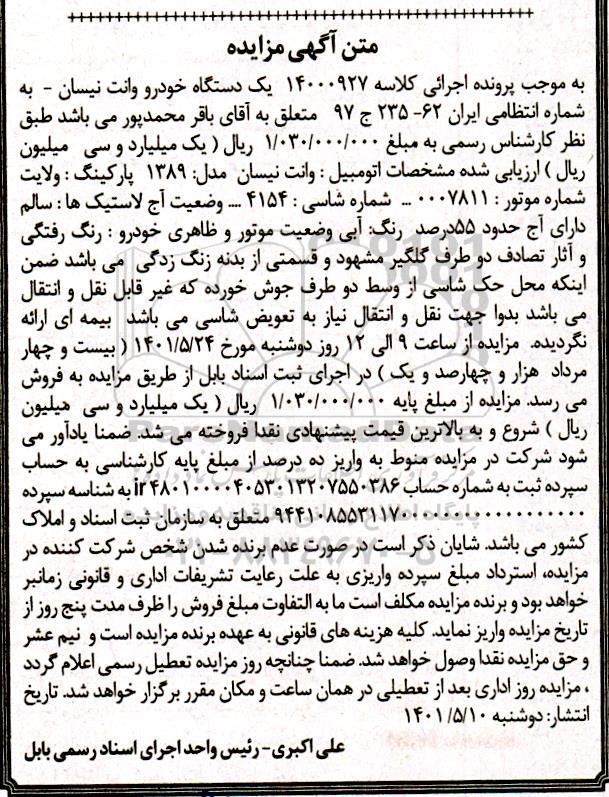 متن آگهی مزایده
به موجب پرونده اجرائی کلاسه ۱۴۰۰۰۹۲۷ یک دستگاه خودرو وانت نیسان - به
شماره انتظامی ایران ۶۲- ۲۳۵ ج ۹۷ متعلق به آقای باقر محمدپور می باشد طبق
نظر کارشناس رسمی به مبلغ ۱/۰۳۰/۰۰۰/۰۰۰ ریال ( یک میلیارد و سی میلیون
ریال ) ارزیابی شده مشخصات اتومبیل : وانت نیسان مدل: ۱۳۸۹ پارکینگ : ولایت
شماره موتور : ۰۰۰۷۸۱۱ ... شماره شاسی : ۴۱۵۴ .... وضعیت آج لاستیک ها : سالم
دارای آج حدود ۵۵درصد رنگ: آبی وضعیت موتور و ظاهری خودرو : رنگ رفتگی
و آثار تصادف دو طرف گلگیر مشهود و قسمتی از بدنه زنگ زدگی می باشد ضمن
اینکه محل حک شاسی از وسط دو طرف جوش خورده که غیر قابل نقل و انتقال
می باشد بدوا جهت نقل و انتقال نیاز به تعویض شاسی می باشد بیمه ای ارائه
نگردیده. مزایده از ساعت ۹ الی ۱۲ روز دوشنبه مورخ ۱۴۰۱/۵/۲۴ ( بیست و چهار
مرداد هزار و چهارصد و یک ) در اجرای ثبت اسناد بابل از طریق مزایده به فروش
می رسد. مزایده از مبلغ پایه ۱/۰۳۰/۰۰۰/۰۰۰ ریال ( یک میلیارد و سی میلیون
ریال ) شروع و به بالاترین قیمت پیشنهادی نقدا فروخته می شد. ضمنا یادآور می
شود شرکت در مزایده منوط به واریز ده درصد از مبلغ پایه کارشناسی به حساب
سپرده ثبت به شماره حساب ir۴۸۰۱۰۰۰۰۴۰۵۳۰۱۳۲۰۷۵۵۰۳۸۶ به شناسه سپرده
۹۴۴۱۰۸۵۵۳۱۱۷۰۰۰۰۰۰۰۰۰۰۰۰۰۰۰ متعلق به سازمان ثبت اسناد و املاک
کشور می باشد. شایان ذکر است در صورت عدم برنده شدن شخص شرکت کننده در
مزایده، استرداد مبلغ سپرده واریزی به علت رعایت تشریفات اداری و قانونی زمانبر
خواهد بود و برنده مزایده مکلف است ما به التفاوت مبلغ فروش را ظرف مدت پنج روز از
تاریخ مزایده واریز نماید. کلیه هزینه های قانونی به عهده برنده مزایده است و نیم عشر
و حق مزایده نقدا وصول خواهد شد. ضمنا چنانچه روز مزایده تعطیل رسمی اعلام گردد
، مزایده روز اداری بعد از تعطیلی در همان ساعت و مکان مقرر برگزار خواهد شد. تاریخ
انتشار: دوشنبه ۱۴۰۱/۵/۱۰
علی اکبری- رئیس واحد اجرای اسناد رسمی بابل